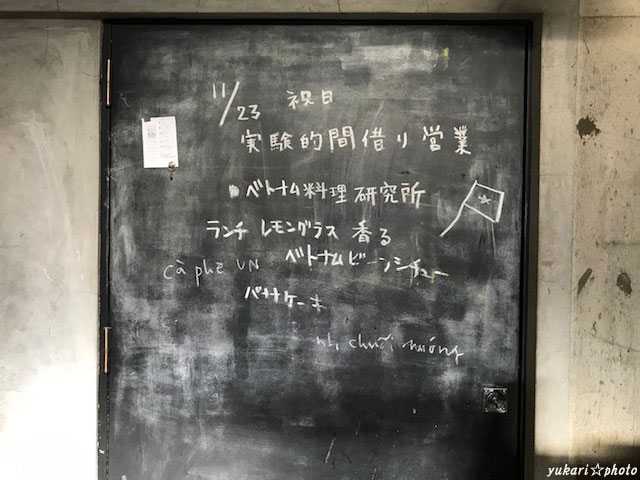 11/23 祝日
実験的間借り営業
ベトナム料理研究所
ランチ レモングラス 香る
cà phê VN ベトナムビーンシチュー
バナナケーキ
chuối nướng
yukari☆photo